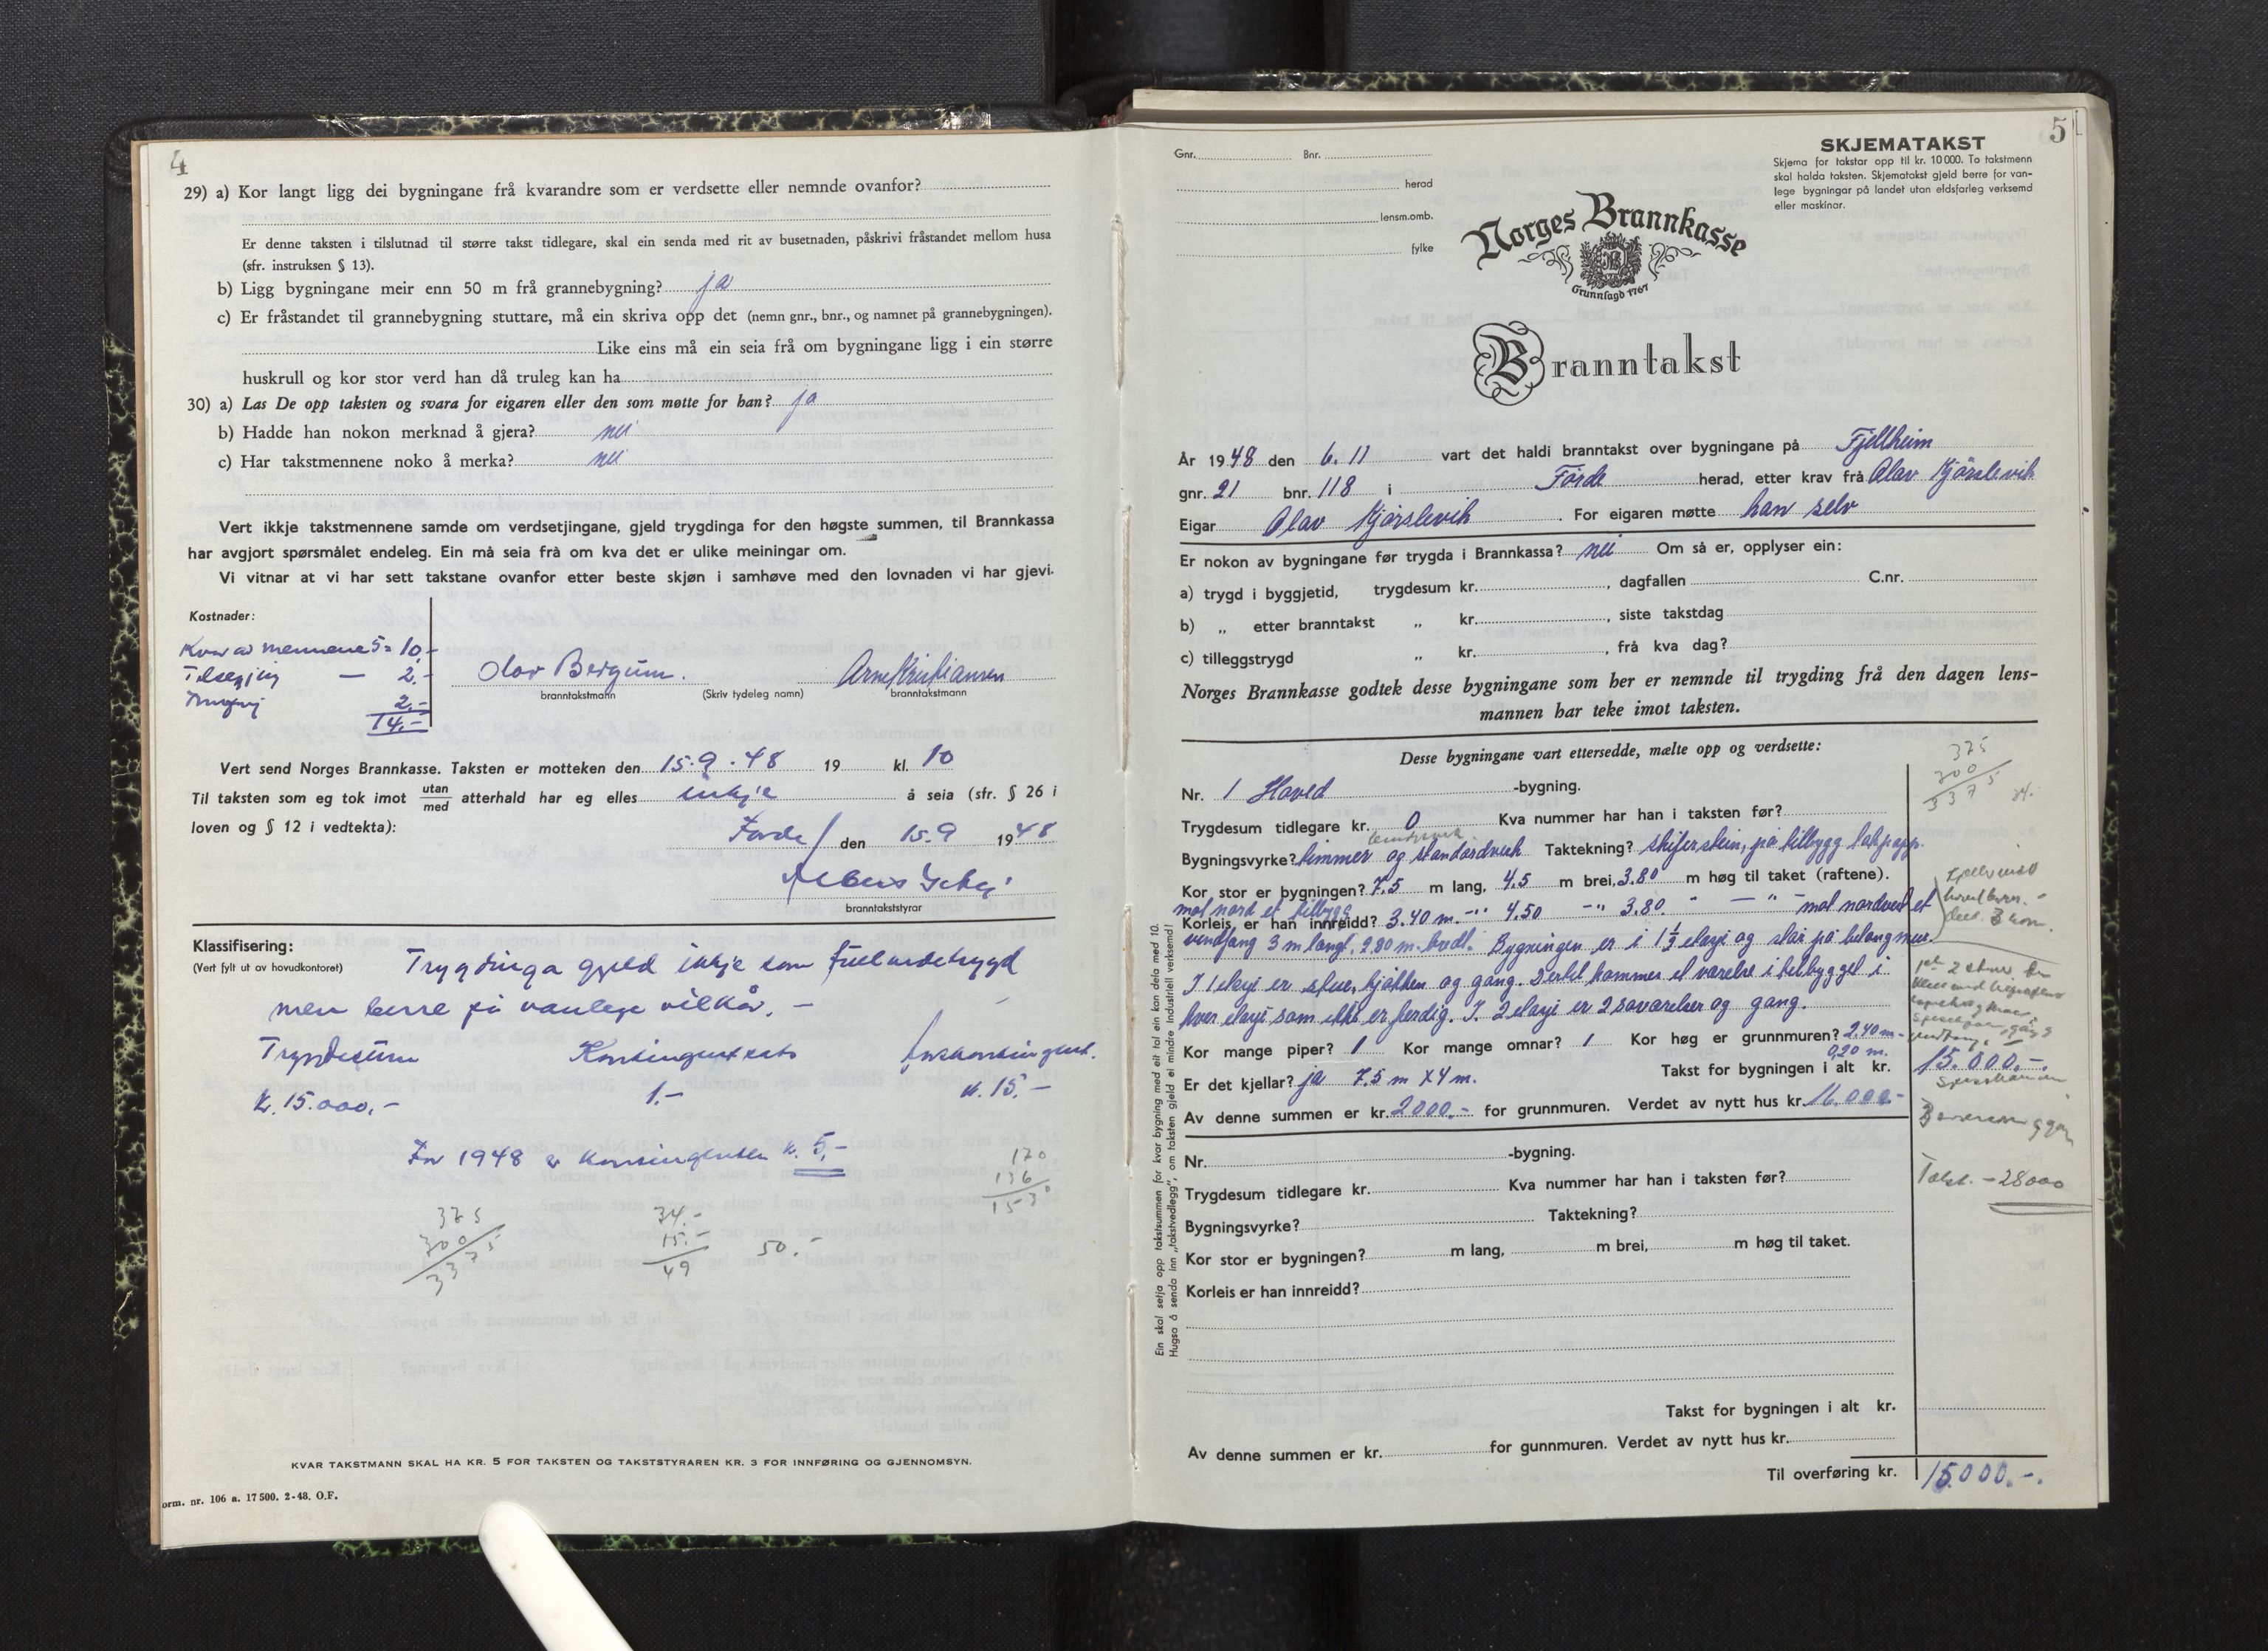 4
29) a) Kor langt ligg dei bygningane frå kvarandre som er verdsette eller nemnde ovanfor?
Er denne taksten i tilslutnad til større takst tidlegare, skal ein senda med rit av busetnaden, påskrivi fråstandet mellom husa
(sfr. instruksen § 13).
b) Ligg bygningane meir enn 50 m frå grannebygning? ja
c) Er fråstandet til grannebygning stuttare, må ein skriva opp det (nemn gnr., bnr., og namnet på grannebygningen).
Like eins må ein seia frå om bygningane ligg i ein større
huskrull og kor stor verd han då truleg kan ha
30) a) Las De opp taksten og svara for eigaren eller den som møtte for han? ja
b) Hadde han nokon merknad å gjera? nei
c) Har takstmennene noko å merka? nei
Vert ikkje takstmennene samde om verdsetjingane, gjeld trygdinga for den høgste summen, til Brannkassa
har avgjort spørsmålet endeleg. Ein må seia frå om kva det er ulike meiningar om.
Vi vitnar at vi har sett takstane ovanfor etter beste skjøn i samhøve med den lovnaden vi har gjevi.
Kostnader:
Kvar av mennene 5 = 10,-
Tilsegjing — 2.-
2.-
14.-
Olav Bergum. Arne Kristiansen
branntakstmann (Skriv tydeleg namn) branntakstmann
Vert send Norges Brannkasse. Taksten er motteken den 15.9.48 19 kl. 10
Til taksten som eg tok imot utan/med atterhald har eg elles inkje å seia (sfr. § 26 i
loven og § 12 i vedtekta):
Førde / den 15.9 1948
branntakststyrar
Klassifisering:
(Vert fylt ut av hovudkontoret)
Trygdinga gjeld ikkje som fullverdetrygd
men berre på vanlege vilkår. -
Trygdesum Kontingentsats Årskontingent.
kr. 15.000,- 1.- kr. 15.-
For 1948 er kontingenten kr. 5,-
170
136
1530
375
300
3375
34.-
15.-
49
50.-
KVAR TAKSTMANN SKAL HA KR. 5 FOR TAKSTEN OG TAKSTSTYRAREN KR. 3 FOR INNFØRING OG GJENNOMSYN.
orm. nr. 106 a. 17 500. 2-48. O.F.
5
SKJEMATAKST
Skjema for takstar opp til kr. 10 000. To takstmenn
skal halda taksten. Skjematakst gjeld berre for van-
lege bygningar på landet utan eldsfarleg verksemd
eller maskinar.
Gnr. Bnr.
herad
lensm.omb.
fylke
Norges Brannkasse
Grunnlagd 1767
Branntakst
År 1948 den 6.11 vart det haldi branntakst over bygningane på Fjellheim
gnr. 21 bnr. 118 i Førde herad, etter krav frå Olav Kjørslevik
Eigar Olav Kjørslevik For eigaren møtte han selv
Er nokon av bygningane før trygda i Brannkassa? nei Om så er, opplyser ein:
a) trygd i byggjetid, trygdesum kr. , dagfallen C.nr.
b) „ etter branntakst „ kr. , siste takstdag
c) tilleggstrygd „ kr. , frå kva dag?
Norges Brannkasse godtek desse bygningane som her er nemnde til trygding frå den dagen lens-
mannen har teke imot taksten.
Desse bygningane vart ettersedde, mælte opp og verdsette:
375
300
3375
Nr. 1 Hoved -bygning.
Trygdesum tidlegare kr. 0 Kva nummer har han i taksten før?
Bygningsvyrke? timmer og standardverk Taktekning? skiferstein, på tilbygg takpapp.
Kor stor er bygningen? 7.5 m lang, 4.5 m brei, 3.80 m høg til taket (raftene).
mot nord et tilbygg
Korleis er han innreidd? 3.40 m. -"- 4.50 -"- 3.80. " - " - mot nordvest et
vindfang 3 m langt, 2.80 m. bredt. Bygningen er i 1 1/2 etasje og står på betongmur.
I 1 etasje er stue, kjøkken og gang. Dertil kommer et værelse i tilbygget i
hver etasje som ikke er ferdig. I. 2 etasje er 2 soværelser og gang.
Kor mange piper? 1 Kor mange omnar? 1 Kor høg er grunnmuren? 2.40 m-
0,20 m.
Er det kjellar? ja 7.5 m x 4 m. Takst for bygningen i alt kr. 15.000.-.
Av denne summen er kr. 2000.- for grunnmuren. Verdet av nytt hus kr. 16.000.-
Takst. - 28000
Nr. -bygning.
Trygdesum tidlegare kr. Kva nummer har han i taksten før?
Bygningsvyrke? Taktekning?
Kor stor er bygningen? m lang, m brei, m høg til taket.
Korleis er han innreidd?
Takst for bygningen i alt kr.
Av denne summen er kr. for gunnmuren. Verdet av nytt hus kr.
Til overføring kr. 15.000.-.
Ein skal setja opp takstsummen for kvar bygning med eit tal ein kan dela med 10.
Hugsa å senda inn „takstvedlegg”, om taksten gjeld ei mindre industriell verksemd!